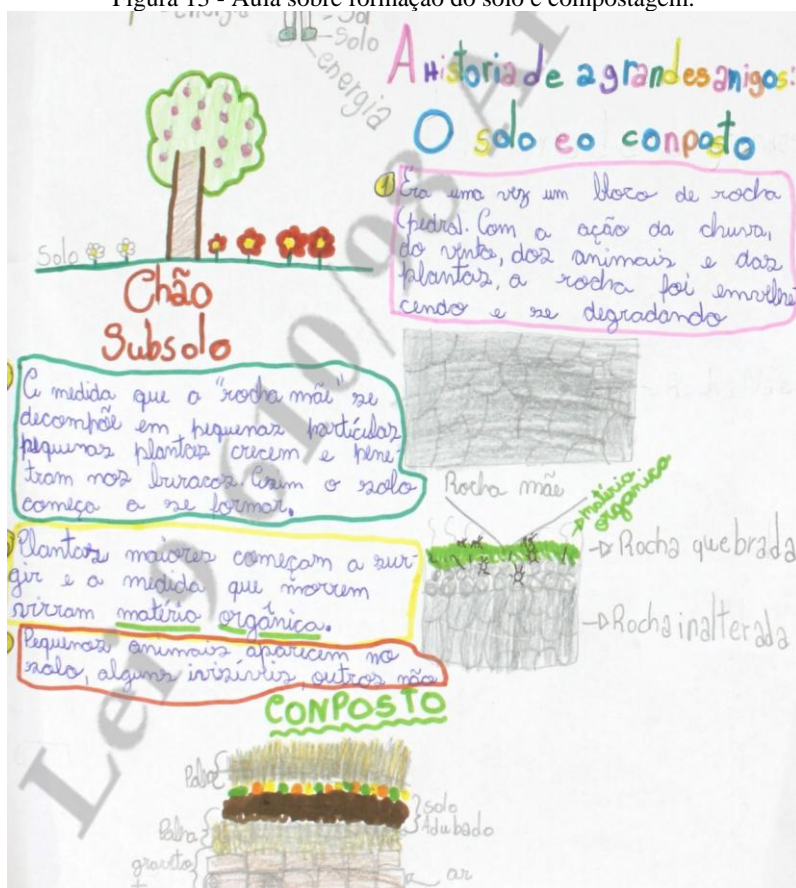 Figura 13 - Aula sobre formação do solo e compostagem.
Solo
energia
A Historia de 2 grandes amigos:
O solo e o conposto
1 Era uma vez um bloco de rocha
(pedra). Com a ação da chuva,
do vento, dos animais e das
plantas, a rocha foi emvelhe
cendo e se degradando
Solo
Chão
Subsolo
A medida que a "rocha mãe" se
decompõe em pequenas partículas
pequenas plantas crecem e pene
tram nos buracos. Assim o solo
começa a se formar.
Rocha mãe
matéria
orgânica
Rocha quebrada
Rocha inalterada
Plantas maiores começam a sur-
gir e a medida que morrem
virram matéria orgânica.
Pequenos animais aparecem no
solo, alguns invisíveis, outros não
CONPOSTO
Palha
solo
Adubado
Palha
graveto
ar
Lei 9 610/98